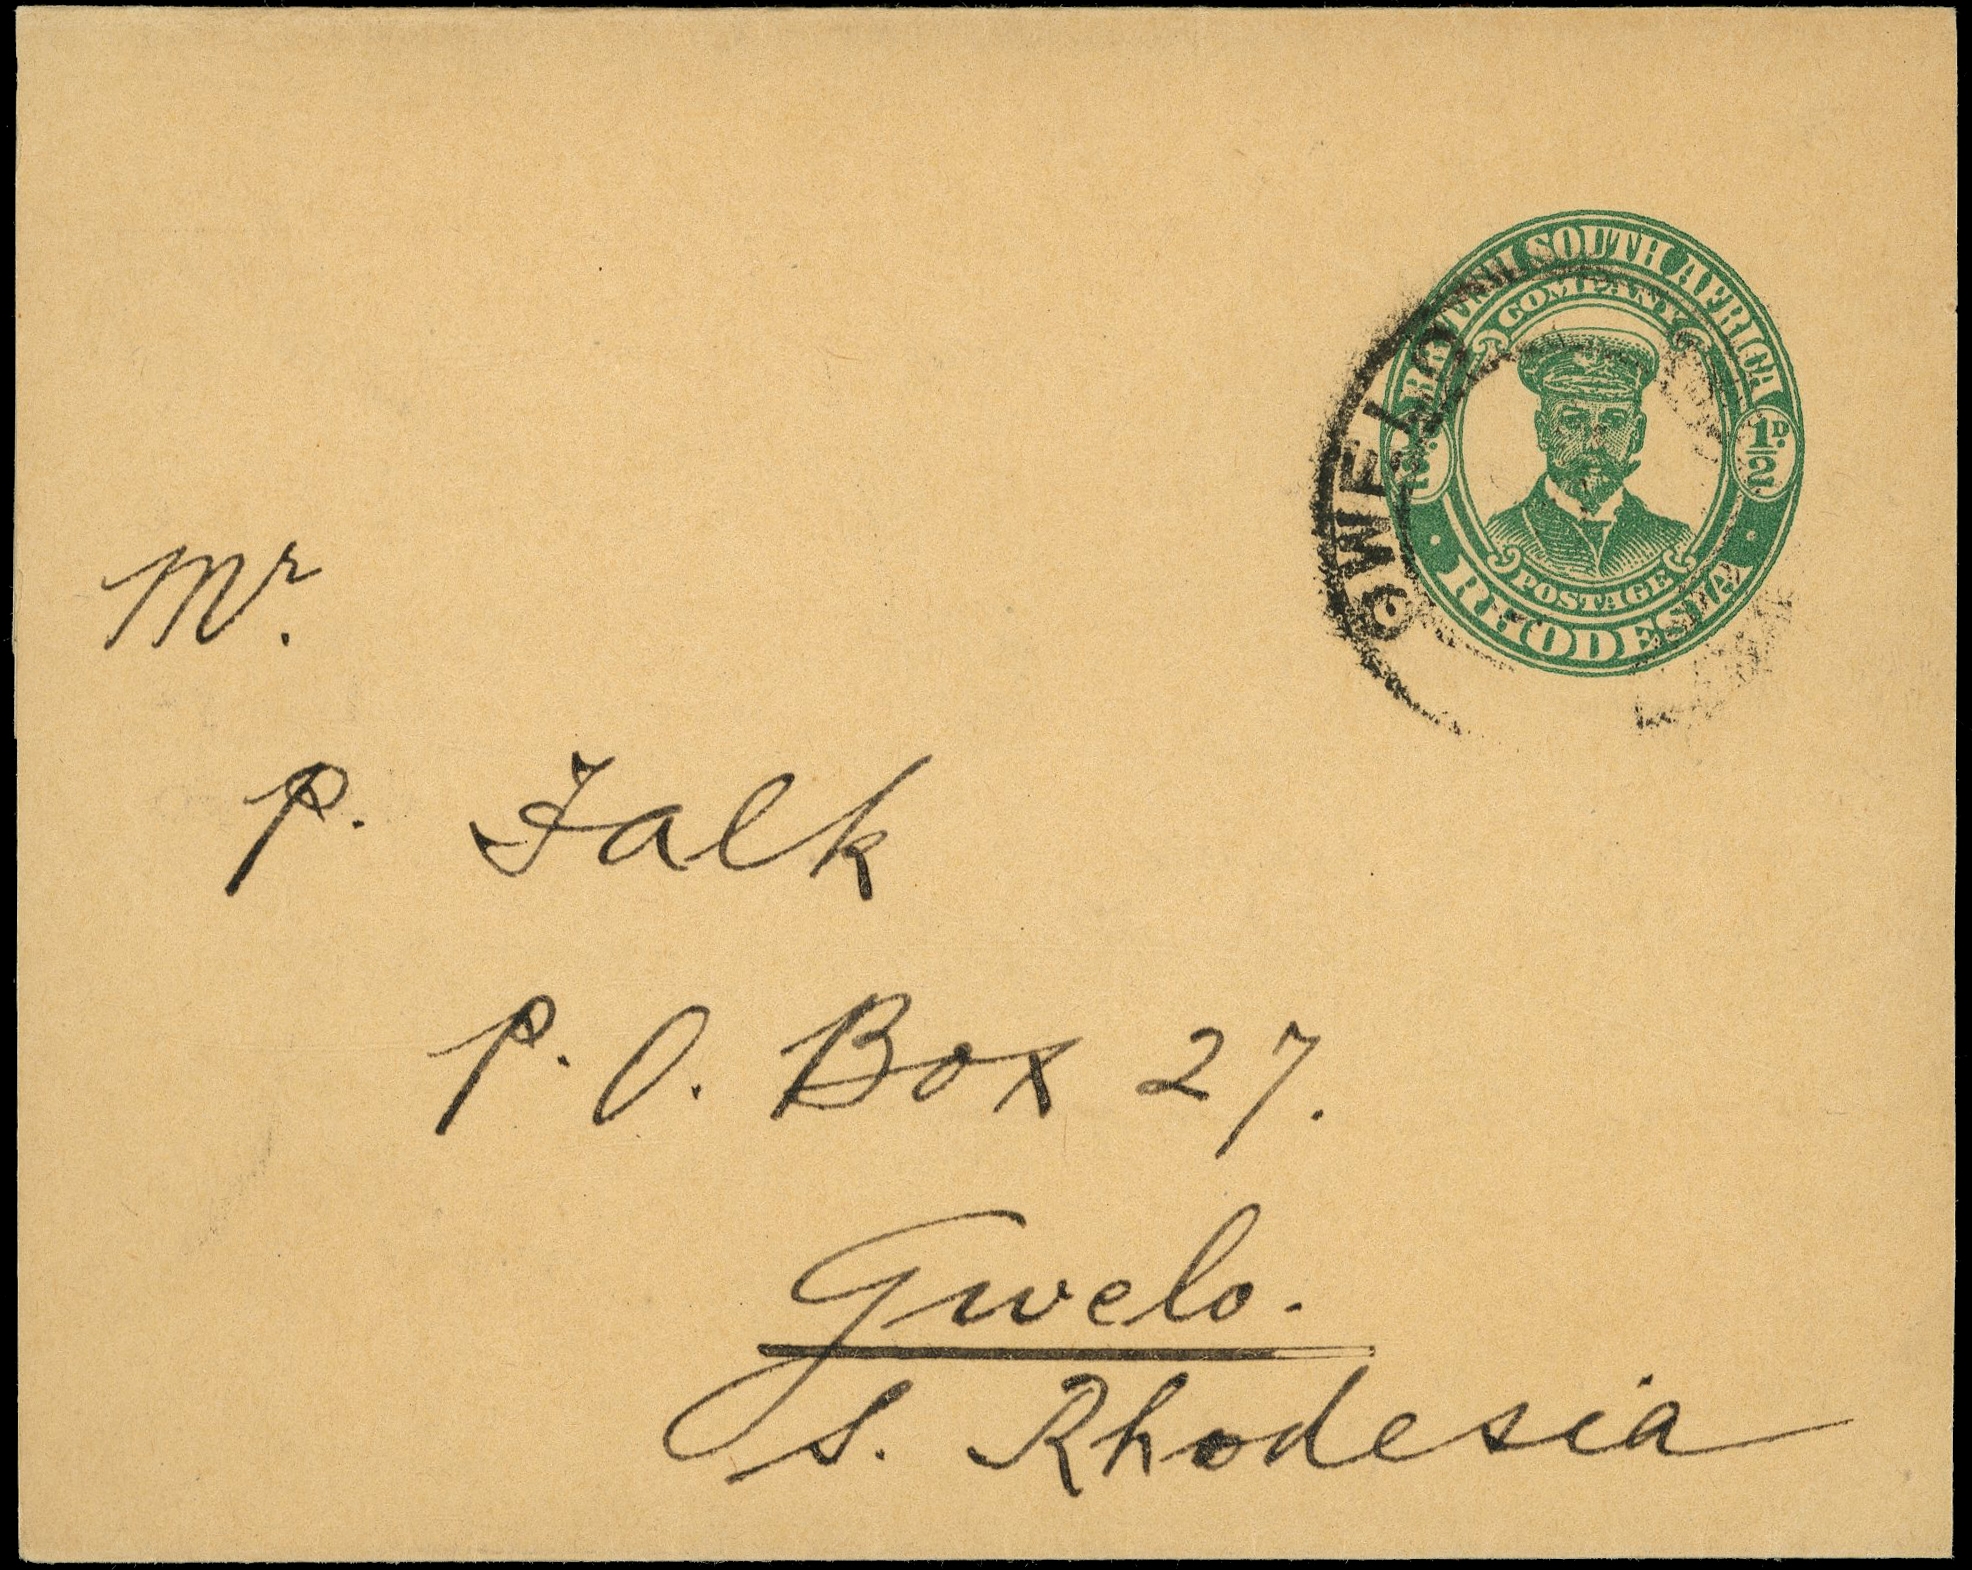 BRITISH SOUTH AFRICA
COMPANY
½D.
POSTAGE
RHODESIA
GWELO
Mr.
P. Falk
P. O. Box 27.
Gwelo.
S. Rhodesia